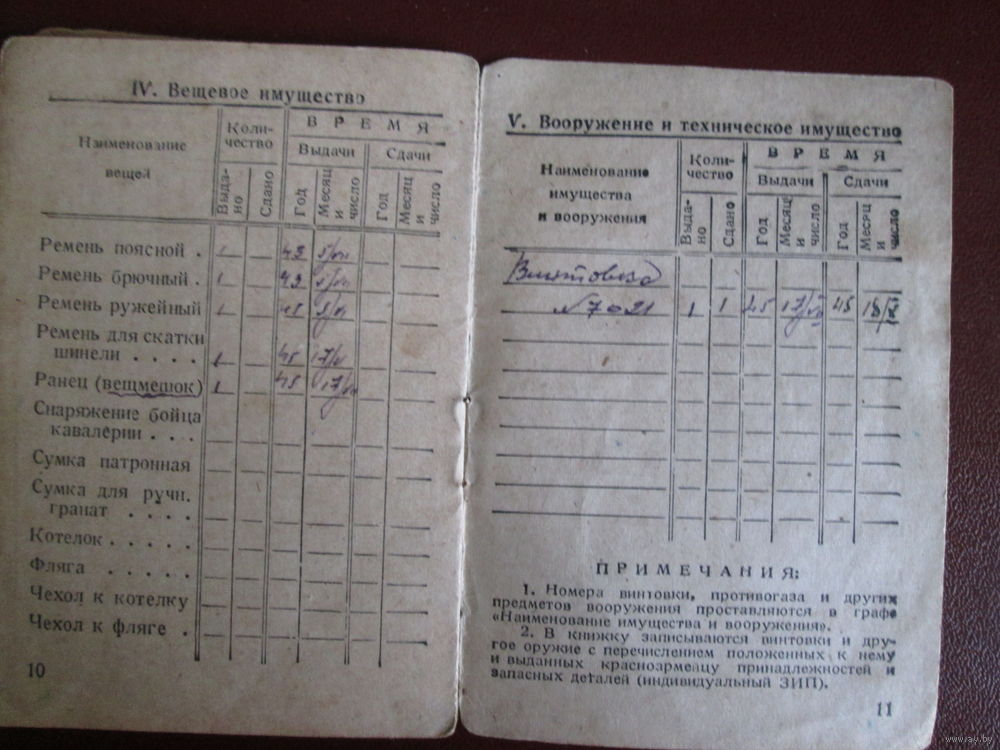 IV. Вещевое имущество
Наименование
вещей
Коли-
чество
ВРЕМЯ
Выдачи
Сдачи
Выда-
но
Сдано
Год
Месяц
и
число
Год
Месяц
и
число
Ремень поясной . 1
Ремень брючный . 1
Ремень ружейный 1
Ремень для скатки
шинели . . . . 1 45
Ранец (вещмешок) 1 45
Снаряжение бойца
кавалерии . . . .
Сумка патронная
Сумка для ручн.
гранат . . . .
Котелок . . . . .
Фляга . . . . .
Чехол к котелку
Чехол к фляге .
10
V. Вооружение и техническое имущество
Наименование
имущества
и вооружения
Коли-
чество
ВРЕМЯ
Выдачи
Сдачи
Выда-
но
Сдано
Год
Месяц
и
число
Год
Месяц
и
число
Винтовка
№ 7021 1 1 45 45
ПРИМЕЧАНИЯ:
1. Номера винтовки, противогаза и других
предметов вооружения проставляются в графе
«Наименование имущества и вооружения».
2. В книжку записываются винтовки и дру-
гое оружие с перечислением положенных к нему
и выданных красноармейцу принадлежностей и
запасных деталей (индивидуальный ЗИП).
11
www.ay.by